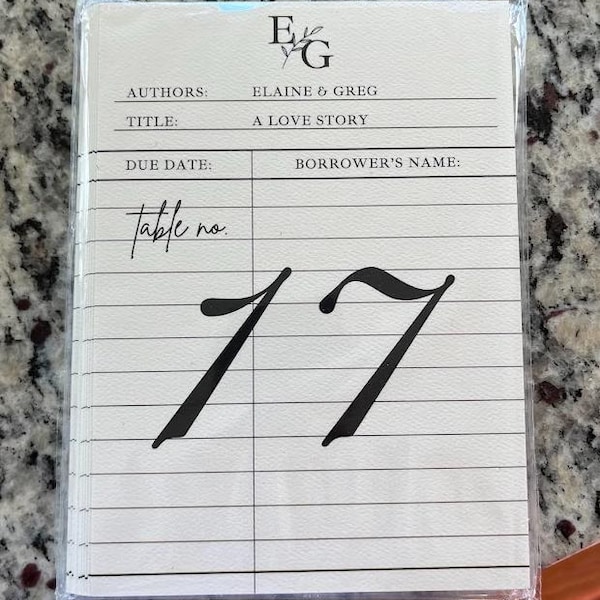 E G
AUTHORS: ELAINE & GREG
TITLE: A LOVE STORY
DUE DATE: BORROWER'S NAME:
table no.
17